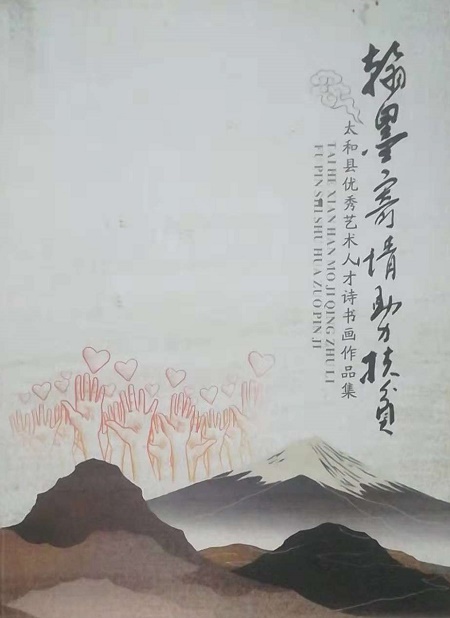 翰墨寄情助力扶贫
太和县优秀艺术人才诗书画作品集
TAI HE XIAN HAN MO JI QING ZHU LI
FU PIN SHI SHU HUA ZUO PIN JI